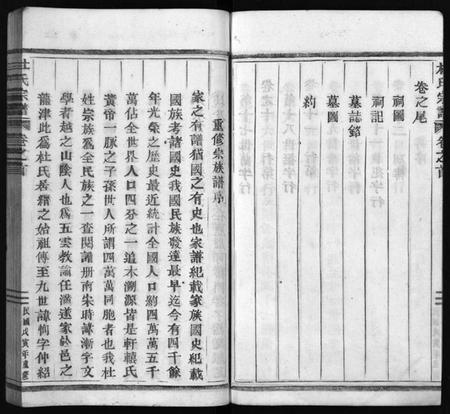 卷之尾
祠圖
祠記
墓誌銘
墓圖
約
重修宗族譜序
家之有譜猶國之有史也家譜紀載家族國史紀載
國族考諸國史我國民族發達最早迄今有四千餘
年光榮之歷史最近統計全國人口約四萬萬五千
萬佔全世界人口四分之一追木溯源皆是軒轅氏
黃帝一脈之子孫世人所謂四萬萬同胞者也我杜
姓宗族為全民族之一查閱譜册南宋時諱漸字文
學者越之山陰人也為五雲教諭任滿遂家於邑之
龍津此為杜氏
之始祖傳至九世諱
字仲紹
杜氏宗譜
卷之首
民國戊寅年重修